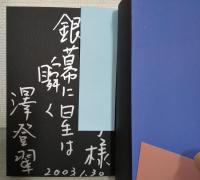 様
銀幕に星は
瞬く
澤登翠
2003.1.30